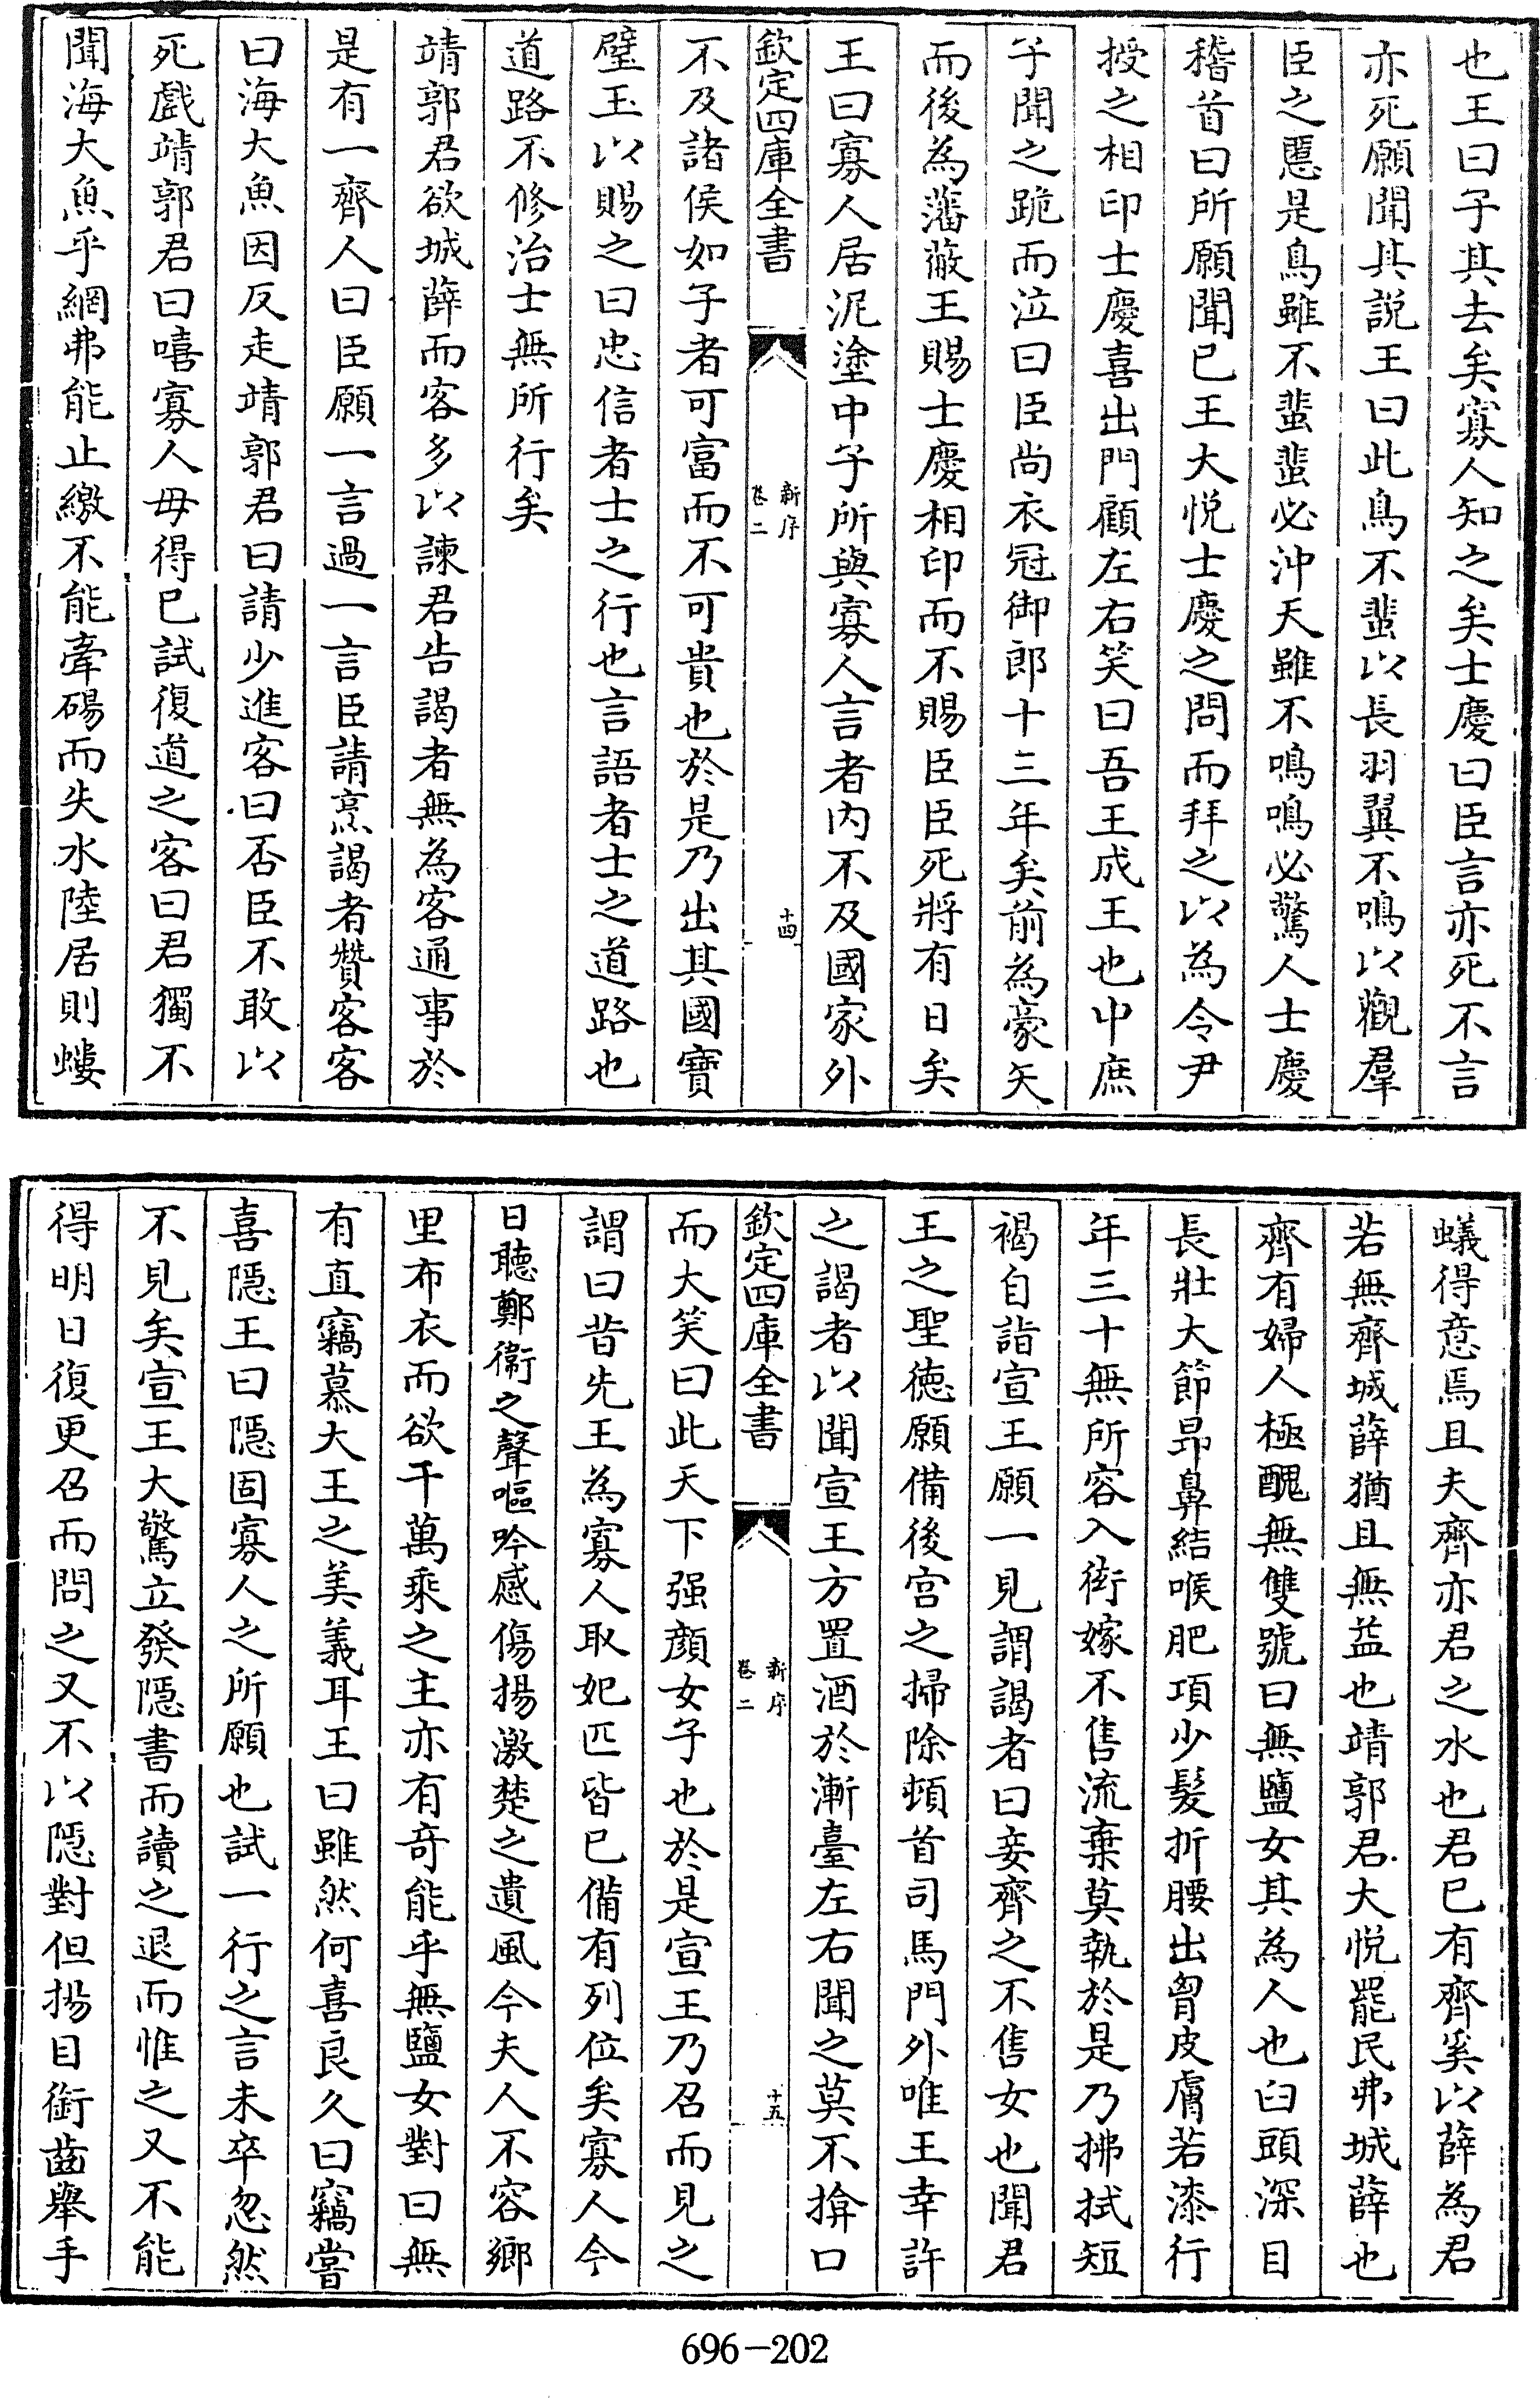 也王曰子其去矣寡人知之矣士慶曰臣言亦死不言
亦死願聞其説王曰此鳥不蜚以長羽翼不鳴以觀羣
臣之慝是鳥雖不蜚蜚必沖天雖不鳴鳴必驚人士慶
稽首曰所願聞已王大悦士慶之問而拜之以為令尹
授之相印士慶喜出門顧左右笑曰吾王成王也中庶
子聞之跪而泣曰臣尚衣冠御郎十三年矣前為豪矢
而後為藩蔽王賜士慶相印而不賜臣臣死將有日矣
王曰寡人居泥塗中子所與寡人言者内不及國家外
欽定四庫全書
新序
卷二
十四
不及諸侯如子者可富而不可貴也於是乃出其國寶
璧玉以賜之曰忠信者士之行也言語者士之道路也
道路不修治士無所行矣
靖郭君欲城薛而客多以諫君告謁者無為客通事於
是有一齊人曰臣願一言過一言臣請烹謁者贊客客
曰海大魚因反走靖郭君曰請少進客曰否臣不敢以
死戲靖郭君曰嘻寡人毋得已試復道之客曰君獨不
聞海大魚乎網弗能止繳不能牽碭而失水陸居則螻
蟻得意焉且夫齊亦君之水也君已有齊奚以薛為君
若無齊城薛猶且無益也靖郭君大悦罷民弗城薛也
齊有婦人極醜無雙號曰無鹽女其為人也臼頭深目
長壯大節昻鼻結喉肥項少髮折腰出胷皮膚若漆行
年三十無所容入衒嫁不售流棄莫執於是乃拂拭短
褐自詣宣王願一見謂謁者曰妾齊之不售女也聞君
王之聖徳願備後宫之掃除頓首司馬門外唯王幸許
之謁者以聞宣王方置酒於漸臺左右聞之莫不揜口
欽定四庫全書
新序
卷二
十五
而大笑曰此天下强顔女子也於是宣王乃召而見之
謂曰昔先王為寡人取妃匹皆已備有列位矣寡人今
日聽鄭衞之聲嘔吟感傷揚激楚之遺風今夫人不容鄉
里布衣而欲干萬乘之主亦有奇能乎無鹽女對曰無
有直竊慕大王之美義耳王曰雖然何喜良久曰竊嘗
喜隠王曰隠固寡人之所願也試一行之言未卒忽然
不見矣宣王大驚立發隠書而讀之退而惟之又不能
得明日復更召而問之又不以隠對但揚目銜齒舉手
696-202